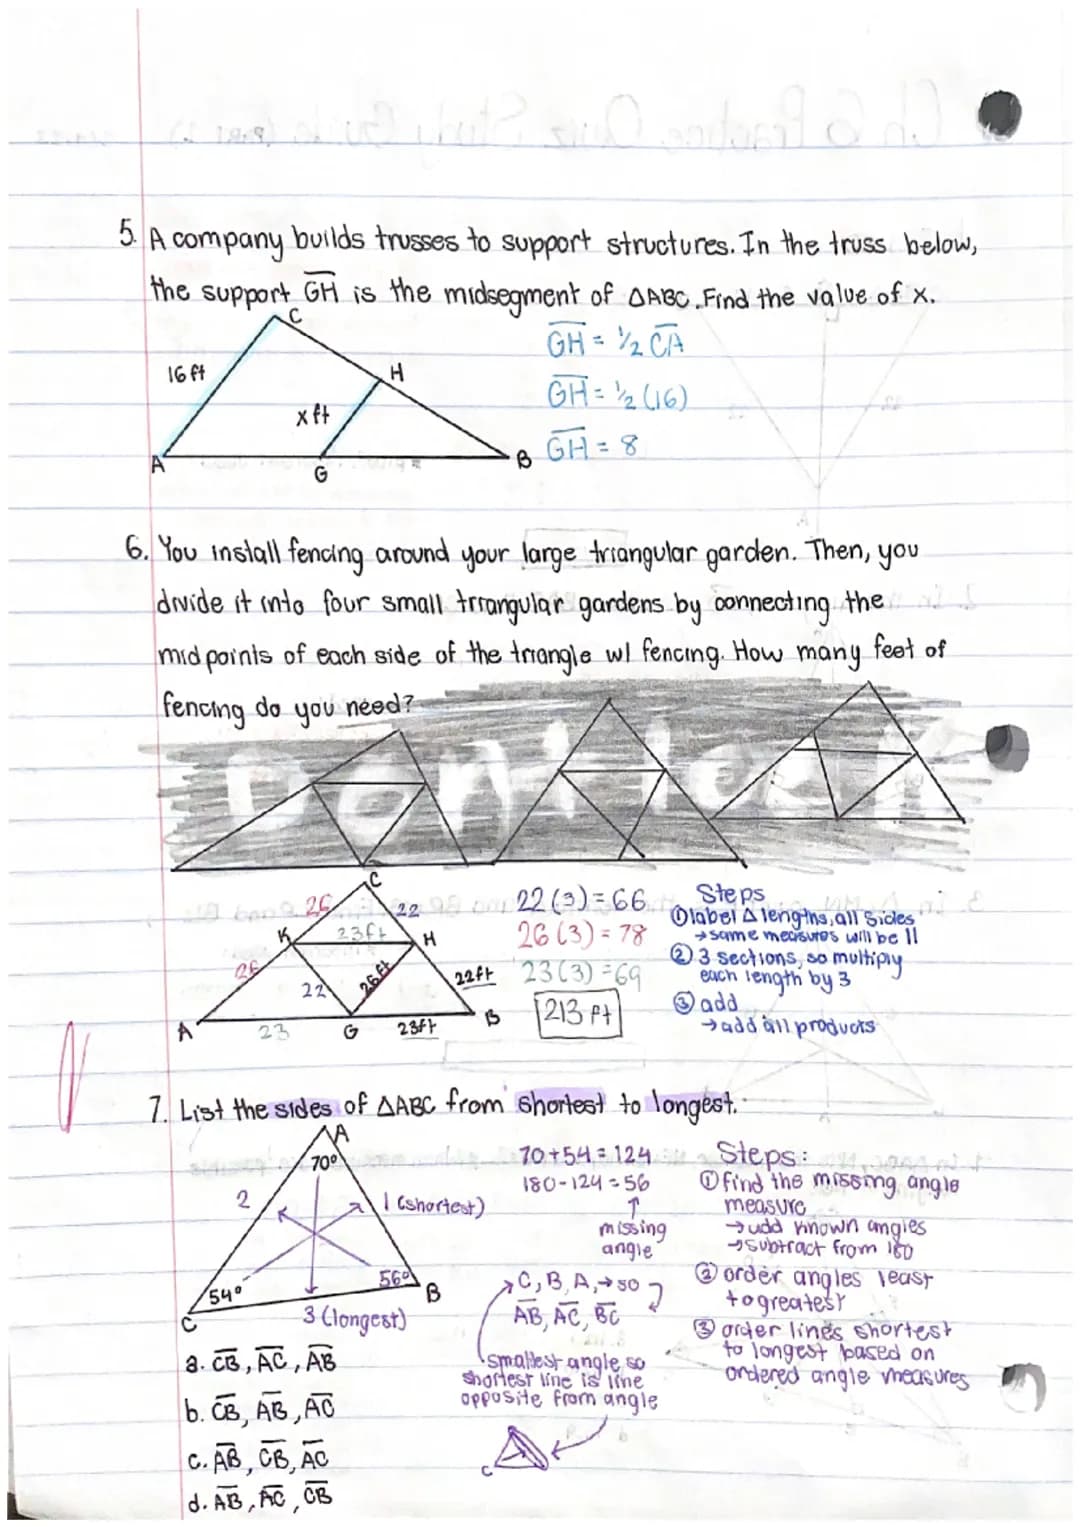 5. A company builds trusses to support structures. In the truss below,
the support GH is the midsegment of △ABC. Find the value of x.
C
16 ft
H
x ft
A
G
B
GH = 1/2 CA
GH = 1/2 (16)
GH = 8
6. You install fencing around your large triangular garden. Then, you
divide it into four small triangular gardens by connecting the
midpoints of each side of the triangle w/ fencing. How many feet of
fencing do you need?
C
26
22
K
23ft
H
26
22
26ft
22ft
A
23
G
23ft
B
22(3)=66
26(3)=78
23(3)=69
213 ft
Steps
① label △ lengths, all sides
→ same measures will be ||
② 3 sections, so multiply
each length by 3
③ add
→ add all products
7. List the sides of △ABC from shortest to longest.
A
70°
2
1 (shortest)
54°
56°
B
C
3 (longest)
70+54=124
180-124=56
↑
missing
angle
C, B, A, → so
AB, AC, BC
smallest angle so
shortest line is line
opposite from angle
C
Steps:
① find the missing angle
measure
→ add known angles
→ subtract from 180
② order angles least
to greatest
③ order lines shortest
to longest based on
ordered angle measures
a. CB, AC, AB
b. CB, AB, AC
c. AB, CB, AC
d. AB, AC, CB